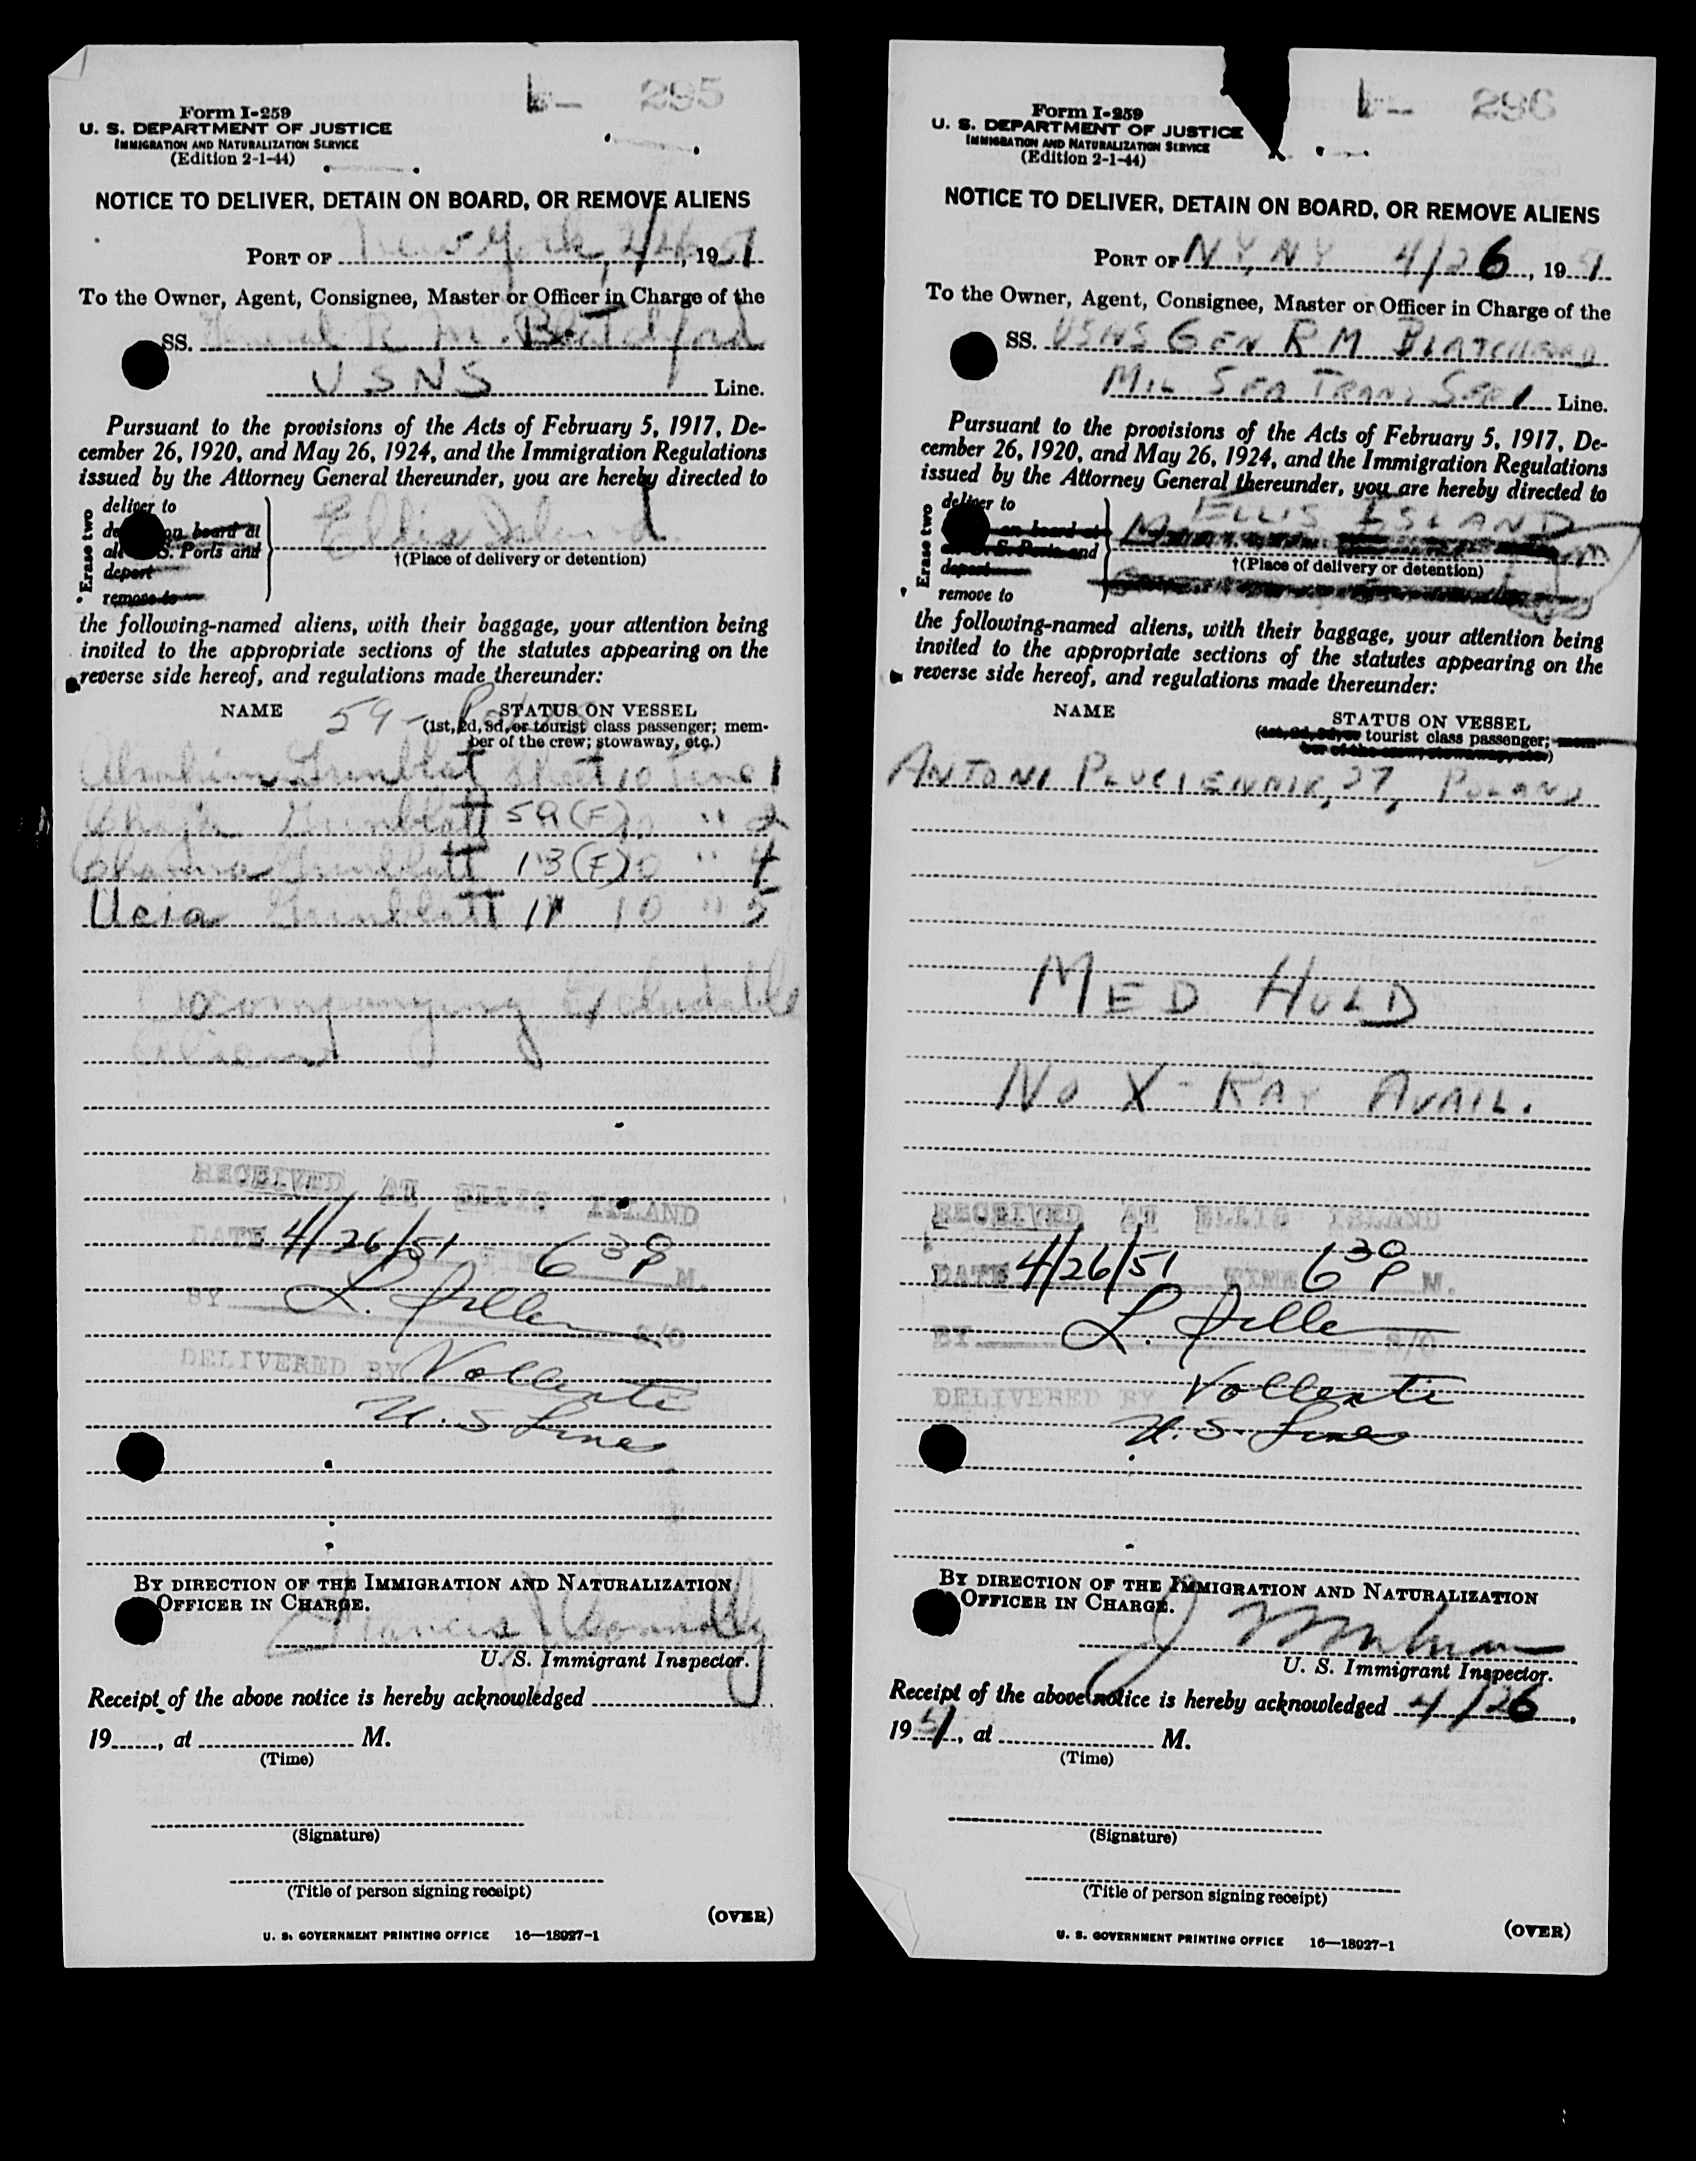 295
Form I-259
U. S. DEPARTMENT OF JUSTICE
IMMIGRATION AND NATURALIZATION SERVICE
(Edition 2-1-44)
NOTICE TO DELIVER, DETAIN ON BOARD, OR REMOVE ALIENS
PORT OF New York, 4/26, 1951
To the Owner, Agent, Consignee, Master or Officer in Charge of the
SS. General R. M. Blatchford
USNS Line.
Pursuant to the provisions of the Acts of February 5, 1917, De-
cember 26, 1920, and May 26, 1924, and the Immigration Regulations
issued by the Attorney General thereunder, you are hereby directed to
* Erase two
deliver to
on board at
S. Ports and
deport
remove to
Ellis Island
†(Place of delivery or detention)
the following-named aliens, with their baggage, your attention being
invited to the appropriate sections of the statutes appearing on the
reverse side hereof, and regulations made thereunder:
NAME 59 - STATUS ON VESSEL
(1st, 2d, 3d, or tourist class passenger; mem-
ber of the crew; stowaway, etc.)
Grunblatt Sheet 10 Line 1
Chaja Grunblatt 59 (F) 10 " 2
Grunblatt 13 (F) 10 " 4
Ucia Grunblatt 11 10 " 5
Accompanying Excludable
Aliens
RECEIVED AT ELLIS ISLAND
DATE 4/26/51 TIME 6 30 P M.
BY L. S/O
DELIVERED BY Vollenti
U.S Lines
BY DIRECTION OF THE IMMIGRATION AND NATURALIZATION
OFFICER IN CHARGE.
Francis J Connolly
U. S. Immigrant Inspector.
Receipt of the above notice is hereby acknowledged
19......, at M.
(Time)
(Signature)
(Title of person signing receipt)
(OVER)
U. S. GOVERNMENT PRINTING OFFICE 16—18027-1
296
Form I-259
U. S. DEPARTMENT OF JUSTICE
IMMIGRATION AND NATURALIZATION SERVICE
(Edition 2-1-44)
NOTICE TO DELIVER, DETAIN ON BOARD, OR REMOVE ALIENS
PORT OF N Y, N Y 4/26, 1951
To the Owner, Agent, Consignee, Master or Officer in Charge of the
SS. USNS GEN R M BLATCHFORD
MIL SEA TRANS SERV Line.
Pursuant to the provisions of the Acts of February 5, 1917, De-
cember 26, 1920, and May 26, 1924, and the Immigration Regulations
issued by the Attorney General thereunder, you are hereby directed to
* Erase two
deliver to
on board at
U. S. Ports and
deport
remove to
ELLIS ISLAND
†(Place of delivery or detention)
the following-named aliens, with their baggage, your attention being
invited to the appropriate sections of the statutes appearing on the
reverse side hereof, and regulations made thereunder:
NAME STATUS ON VESSEL
(1st, 2d, 3d, or tourist class passenger; mem-
ber of the crew; stowaway, etc.)
ANTONI PLUCIENNIK, 27, POLAND
MED HOLD
NO X-RAY AVAIL.
RECEIVED AT ELLIS ISLAND
DATE 4/26/51 TIME 6 30 P M.
BY L. S/O
DELIVERED BY Vollenti
U.S. Lines
BY DIRECTION OF THE IMMIGRATION AND NATURALIZATION
OFFICER IN CHARGE.
U. S. Immigrant Inspector.
Receipt of the above notice is hereby acknowledged 4/26,
1951, at M.
(Time)
(Signature)
(Title of person signing receipt)
(OVER)
U. S. GOVERNMENT PRINTING OFFICE 16—18027-1